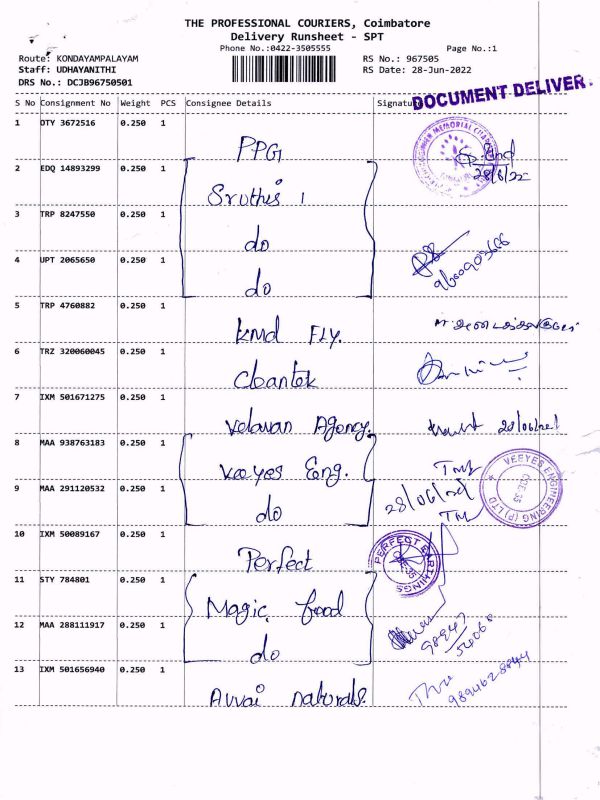 THE PROFESSIONAL COURIERS, Coimbatore
Delivery Runsheet - SPT
Phone No.:0422-3505555
Page No.:1
Route: KONDAYAMPALAYAM
RS No.: 967505
Staff: UDHAYANITHI
RS Date: 28-Jun-2022
DRS No.: DCJB96750501
DOCUMENT DELIVER.
S No Consignment No Weight PCS Consignee Details Signature
1 DTY 3672516 0.250 1 PPG
28/6/22
2 EDQ 14893299 0.250 1 Sruthis
3 TRP 8247550 0.250 1 do
4 UPT 2065650 0.250 1 do
5 TRP 4760882 0.250 1 kmd FLY.
6 TRZ 320060045 0.250 1 Cleantek
7 IXM 501671275 0.250 1 Velavan Agency.
8 MAA 938763183 0.250 1 Veeyes Eng.
VEEYES ENGINEERING (P) LTD
CBE-35
9 MAA 291120532 0.250 1 do
10 IXM 50089167 0.250 1 Perfect
PERFECT EARTHINGS
11 STY 784801 0.250 1 Magic food
12 MAA 288111917 0.250 1 do
98947
54060
13 IXM 501656940 0.250 1 Avvai naturals.
9894628844